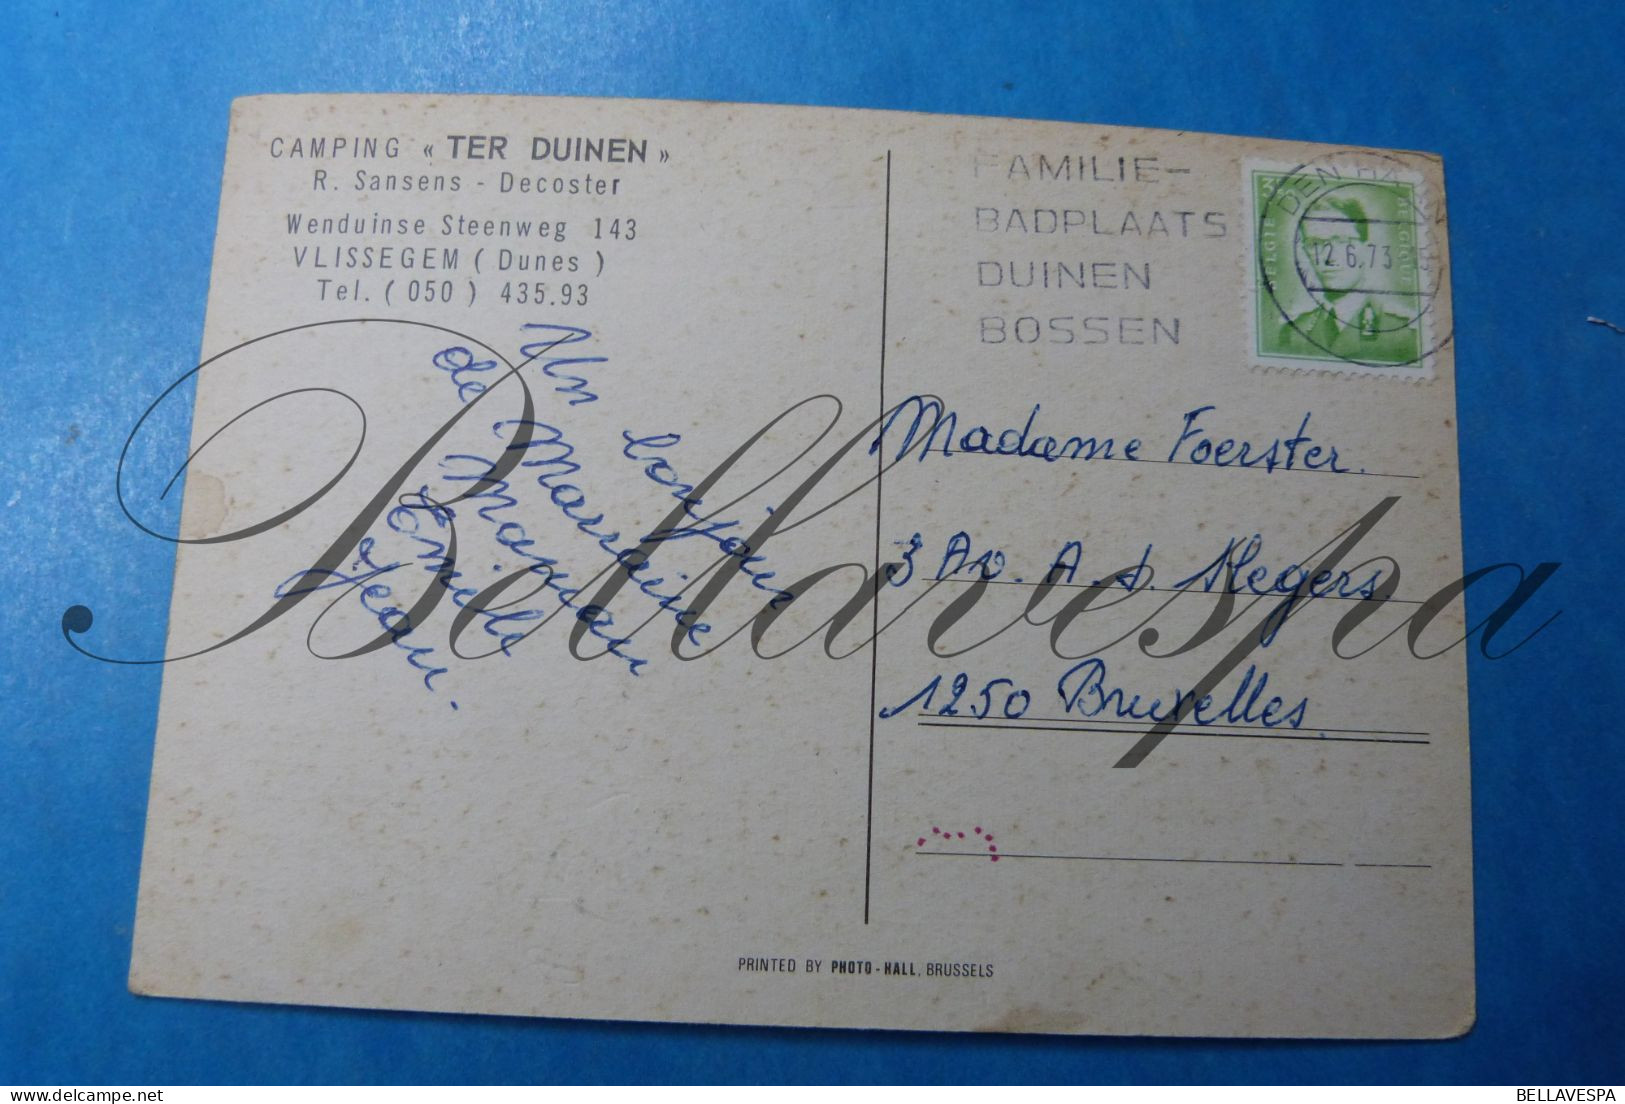 CAMPING « TER DUINEN »
R. Sansens - Decoster
Wenduinse Steenweg 143
VLISSEGEM ( Dunes )
Tel. ( 050 ) 435.93
FAMILIE-
BADPLAATS
DUINEN
BOSSEN
DEN HAAN
12.6.73
BELGIE
BELGIQUE
Un bonjour
de Marraine
Maman
Emile
Jean.
Madame Foerster.
3 Av. A. d. Slegers.
1250 Bruxelles.
PRINTED BY PHOTO-HALL, BRUSSELS
Bellavespa
BELLAVESPA